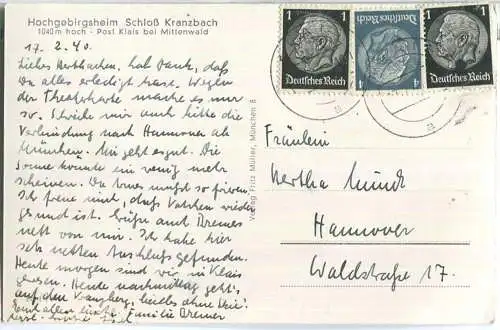 Hochgebirgsheim Schloß Kranzbach
1040 m hoch - Post Klais bei Mittenwald
17. 2. 40.
Liebes Herthachen, hab Dank, daß
Du alles erledigt hast. Wegen
der Theaterkarte mache es nur
so. Schreibe mir auch bitte die
Verbindung nach Hannover ab
München. Mir geht es gut. Die
Sonne könnte ein wenig mehr
scheinen. Du mußt so frieren.
Ich freue mich, daß Vatchen wieder
gesund ist. Grüße auch Bremes
nett von mir. Ich habe hier
sehr netten Anschluß gefunden.
Heute morgen sind wir in Klais
gewesen. Heute nachmittag geht's
auf den Kranzberg, Dir!
Familie Bremer
Verlag Fritz Müller, München 8
1
Deutsches Reich
4
Deutsches Reich
1
Deutsches Reich
Fräulein
Hertha Münch
Hannover
Waldstraße 17.